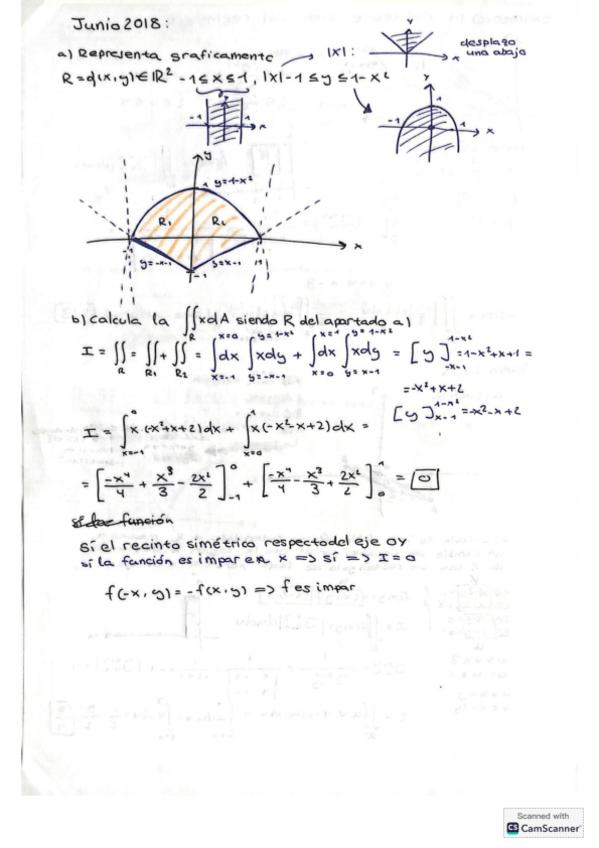 Junio 2018:
a) Representa graficamente
|x|:
y
x
desplazo
una abajo
R = {(x,y) ∈ ℝ² -1≤x≤1, |x|-1 ≤ y ≤ 1-x²
-1
1
x
y
-1
1
1
x
y
1
y=1-x²
R₁
-1
1
x
y=-x-1
y=x-1
-1
b) Calcula la ∬xdA siendo R del apartado a)
R
I = ∬ = ∬ + ∬ = ∫dx ∫xdy + ∫dx ∫xdy = [y] = 1-x²+x+1 =
R R₁ R₂ x=-1 x=0 y=-x-1 y=1-x² x=0 x=1 y=x-1 y=1-x² -x-1 1-x²
= -x²+x+2
[y] 1-x² x-1 = -x²-x+2
I = ∫ x·(-x²+x+2)dx + ∫ x(-x²-x+2)dx =
x=-1 0 x=0 1
= [-x⁴/4 + x³/3 - 2x²/2]₋₁⁰ + [-x⁴/4 - x³/3 + 2x²/2]₀¹ = 0
función
Si el recinto simétrico respecto del eje OY
si la función es impar en x => sí => I = 0
f(-x,y) = -f(x,y) => f es impar
Scanned with
CS CamScanner